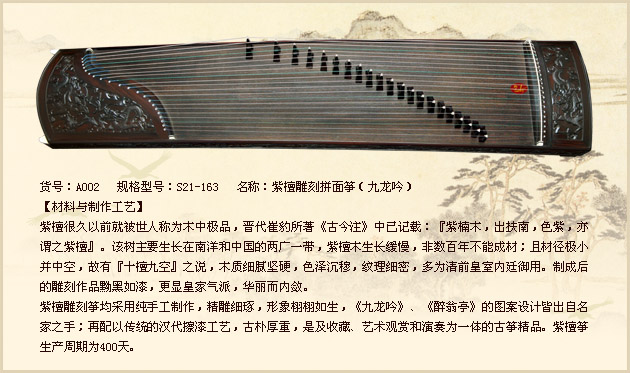 货号：A002 规格型号：S21-163 名称：紫檀雕刻拼面筝（九龙吟）
【材料与制作工艺】
紫檀很久以前就被世人称为木中极品，晋代崔豹所著《古今注》中已记载：『紫楠木，出扶南，色紫，亦
谓之紫檀』。该树主要生长在南洋和中国的两广一带，紫檀木生长缓慢，非数百年不能成材；且材径极小
并中空，故有『十檀九空』之说，木质细腻坚硬，色泽沉穆，纹理细密，多为清前皇室内廷御用。制成后
的雕刻作品黝黑如漆，更显皇家气派，华丽而内敛。
紫檀雕刻筝均采用纯手工制作，精雕细琢，形象栩栩如生，《九龙吟》、《醉翁亭》的图案设计皆出自名
家之手；再配以传统的汉代擦漆工艺，古朴厚重，是及收藏、艺术观赏和演奏为一体的古筝精品。紫檀筝
生产周期为400天。